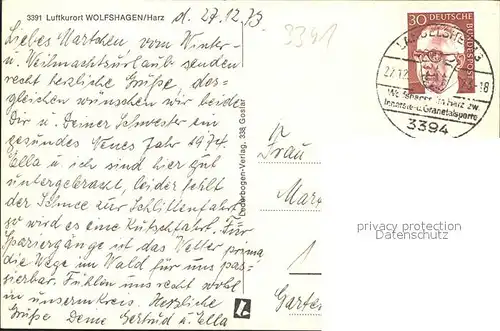 3391 Luftkurort WOLFSHAGEN/Harz
d. 27.12.73
Liebes Martchen, vom Winter-
u. Weihnachtsurlaub senden
recht herzliche Grüße, des-
gleichen wünschen wir beide
Dir u. Deiner Schwester ein
gesundes Neues Jahr 1974.
Ella u. ich sind hier gut
untergebracht, leider fehlt
der Schnee zur Schlittenfahrt,
so wird es eine Kutschfahrt. Für
Spaziergänge ist das Wetter prima
die Wege im Wald für uns pas-
sierbar. Fühlen uns recht wohl
in unserm Kreis. Herzliche
Grüße Deine Gertrud u. Ella
Lederbogen-Verlag, 338 Goslar
3391
30
DEUTSCHE
BUNDESPOST
LANGELSHEIM 3
27.12.
18
Wolfshagen im Harz zw.
Innerste-u.Granetalsperre
3394
Frau
Mar
Garten
privacy protection
Datenschutz